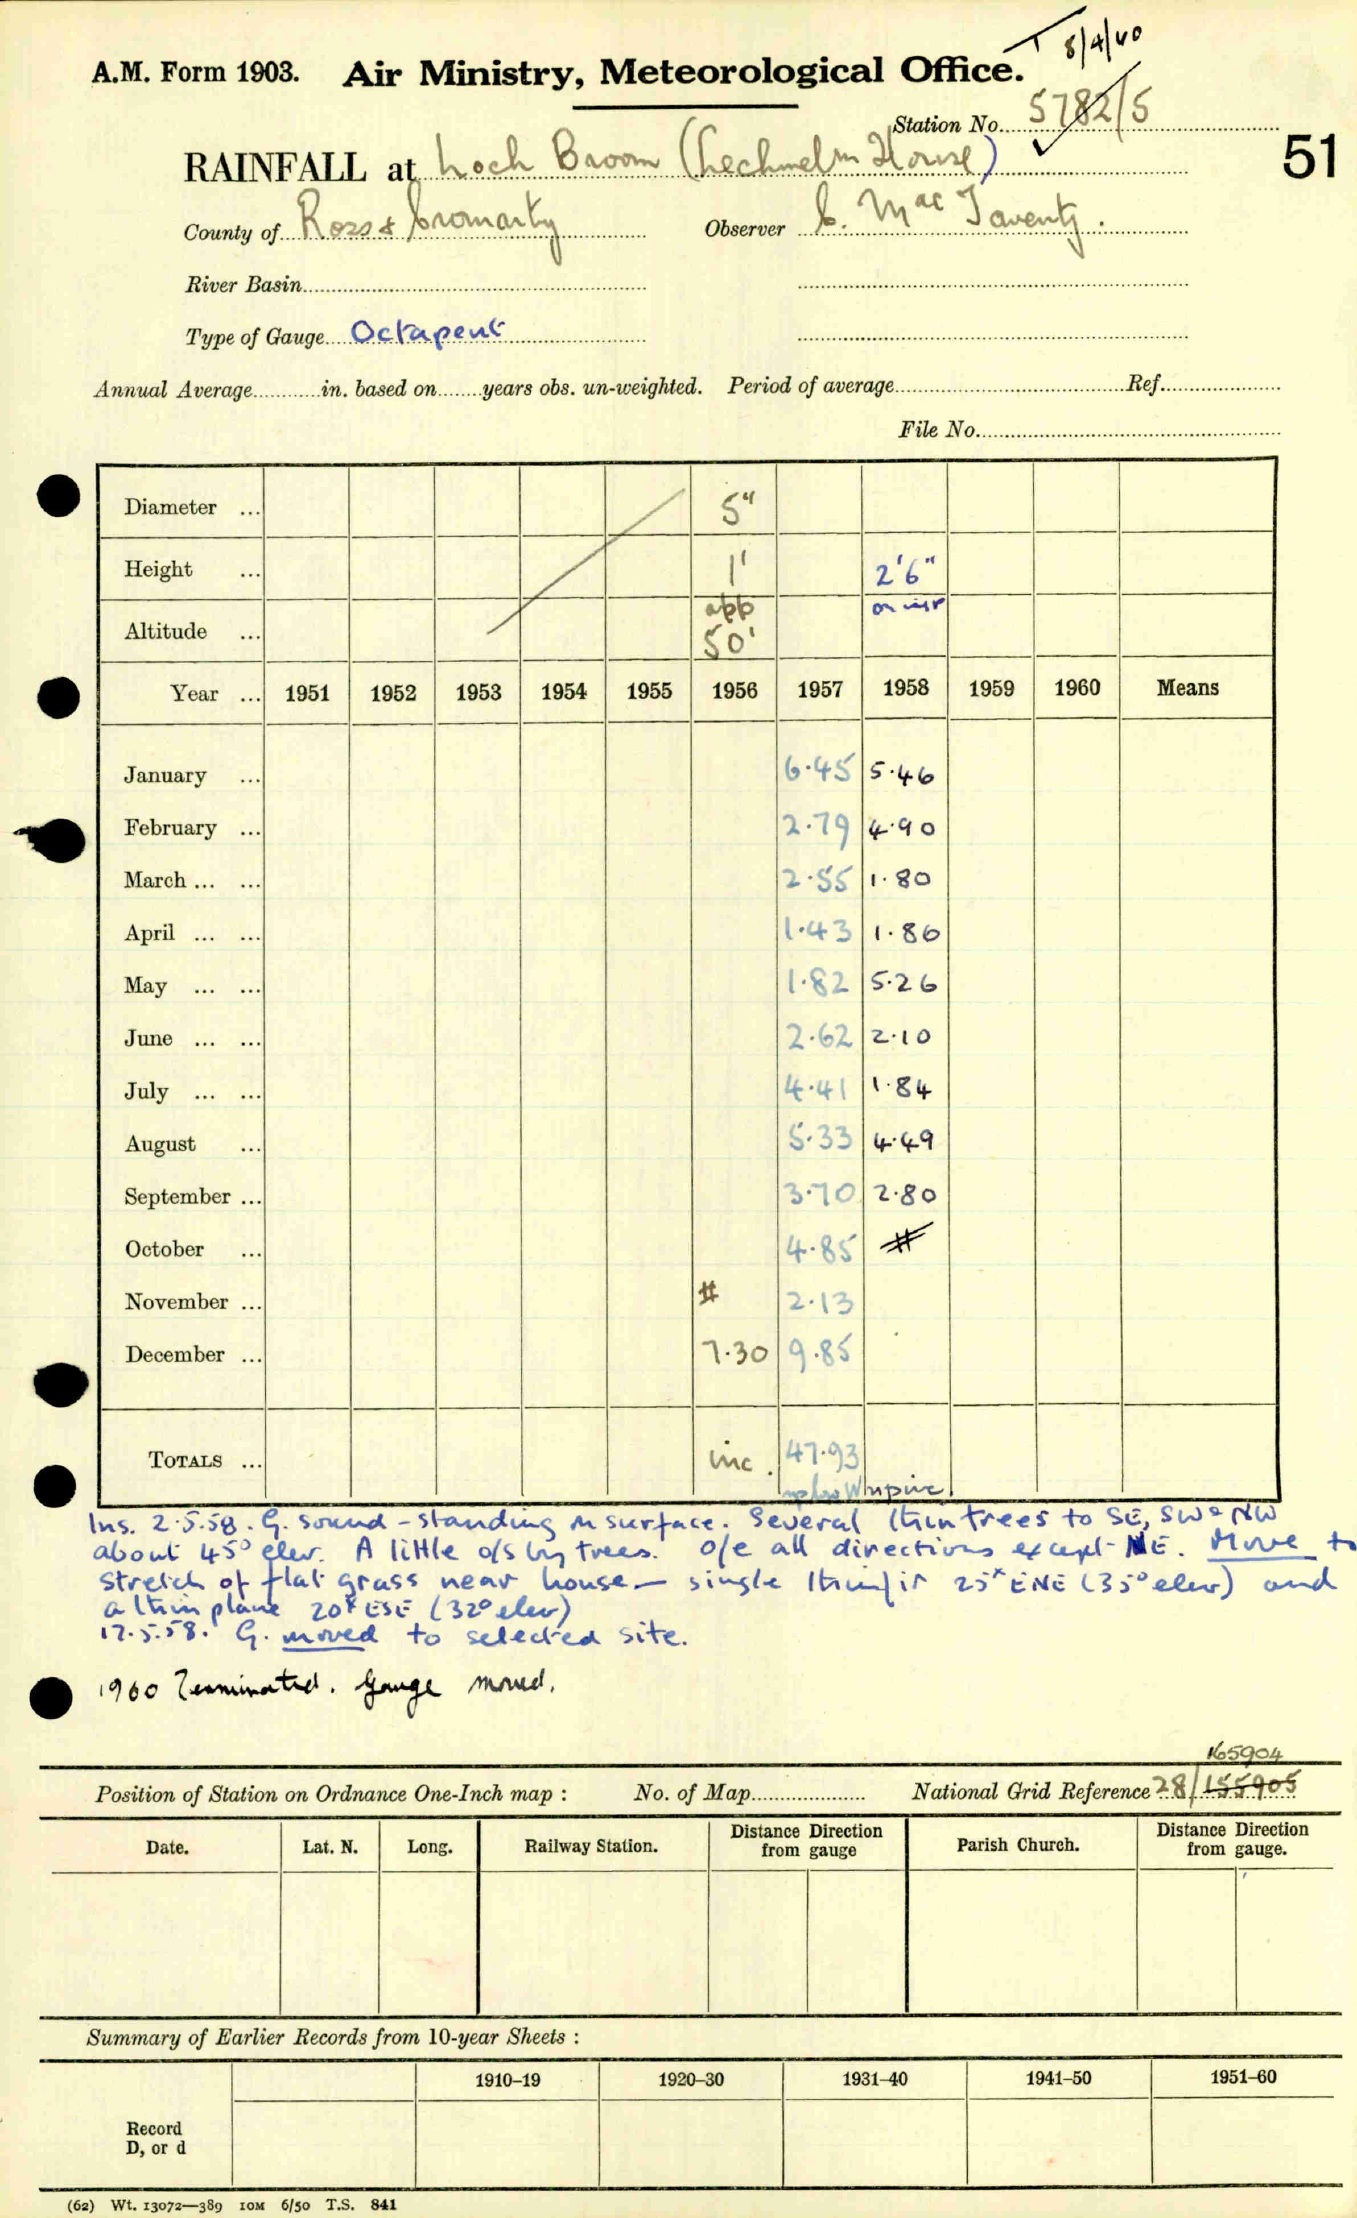 T 8/4/40
A.M. Form 1903. Air Ministry, Meteorological Office.
Station No. 5782/5
51
RAINFALL at Loch Broom (Lechmelm House)
County of Ross & Cromarty Observer C. Mac Taventy.
River Basin
Type of Gauge Octapent
Annual Average in. based on years obs. un-weighted. Period of average Ref.
File No.
Diameter ... 5"
Height ... 1' 2'6"
Altitude ... app 50' on insp
Year ... 1951 1952 1953 1954 1955 1956 1957 1958 1959 1960 Means
January ... 6.45 5.46
February ... 2.79 4.90
March ... ... 2.55 1.80
April ... ... 1.43 1.86
May ... ... 1.82 5.26
June ... ... 2.62 2.10
July ... ... 4.41 1.84
August ... 5.33 4.49
September ... 3.70 2.80
October ... 4.85 #
November ... # 2.13
December ... 7.30 9.85
TOTALS ... inc. 47.93
Ins. 2.5.58. G. sound - standing on surface. Several thin trees to SE, SW & NW
about 45° elev. A little o/s by trees. o/e all directions except NE. Move to
stretch of flat grass near house - single thin fir 25x ENE (35° elev) and
a thin plane 20x ESE (32° elev)
17.5.58. G. moved to selected site.
1960 Terminated. Gauge moved.
165904
Position of Station on Ordnance One-Inch map : No. of Map National Grid Reference 28/155905
Date. Lat. N. Long. Railway Station. Distance Direction from gauge Parish Church. Distance Direction from gauge.
Summary of Earlier Records from 10-year Sheets :
1910–19 1920–30 1931–40 1941–50 1951–60
Record
D, or d
(62) Wt. 13072—389 10M 6/50 T.S. 841